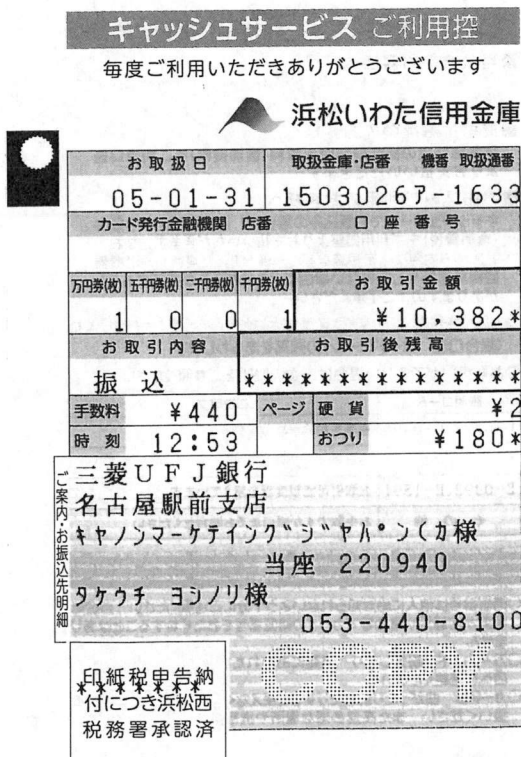 キャッシュサービス ご利用控
毎度ご利用いただきありがとうございます
浜松いわた信用金庫
お取扱日 取扱金庫・店番 機番 取扱通番
05-01-31 1503026ア-1633
カード発行金融機関 店番 口座番号
万円券(枚) 五千円券(枚) 二千円券(枚) 千円券(枚) お取引金額
1 0 0 1 ¥10,382*
お取引内容 お取引後残高
振込 ***************
手数料 ¥440 ページ 硬貨 ¥2
時刻 12:53 おつり ¥180*
ご案内・お振込先明細
三菱UFJ銀行
名古屋駅前支店
キヤノンマーケテイング゛シ゛ヤハ゜ン(カ様
当座 220940
タケウチ ヨシノリ様
053-440-8100
COPY
印紙税申告納
*******
付につき浜松西
税務署承認済